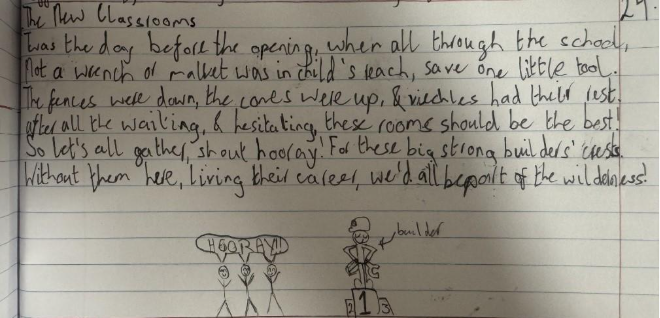 29.
The New Classrooms
'Twas the day before the opening, when all through the school,
Not a wrench or mallet was in child's reach, save one little tool.
The fences were down, the cones were up, & viechles had their rest.
After all the waiting, & hesitating, these rooms should be the best!
So let's all gather, shout hooray! For these big strong builders' crests.
Without them here, living their career, we'd all be part of the wilderness!
HOORAY!!
builder
2 1 3